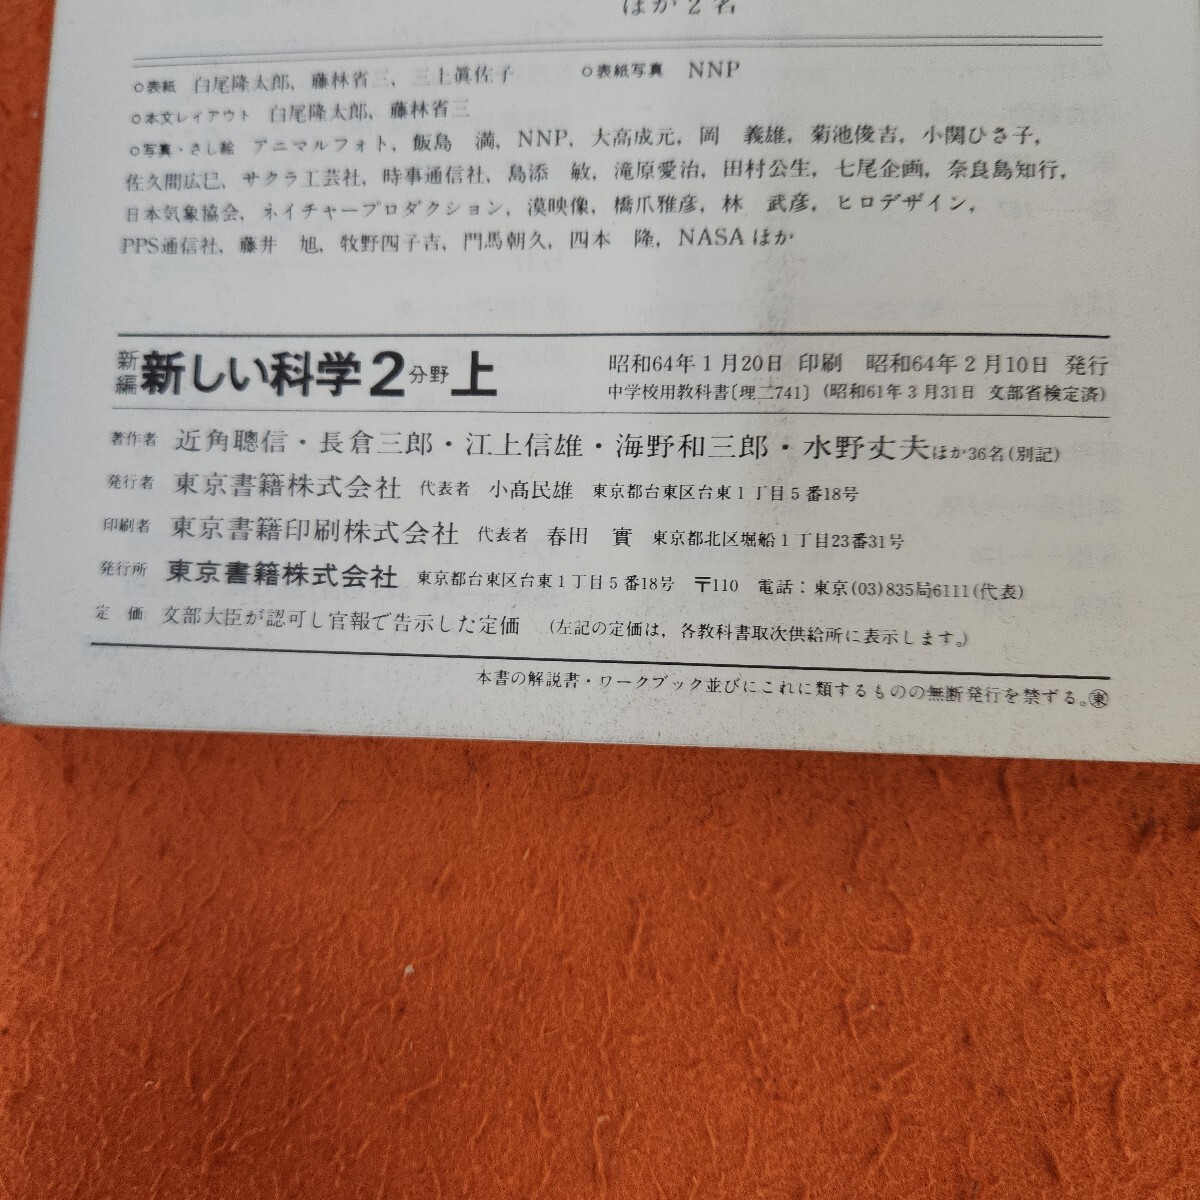 ほか2名
○表紙 白尾隆太郎，藤林省三，三上眞佐子 ○表紙写真 NNP
○本文レイアウト 白尾隆太郎，藤林省三
○写真・さし絵 アニマルフォト，飯島 満，NNP，大高成元，岡 義雄，菊池俊吉，小関ひさ子，
佐久間広巳，サクラ工芸社，時事通信社，島添 敏，滝原愛治，田村公生，七尾企画，奈良島知行，
日本気象協会，ネイチャープロダクション，漠映像，橋爪雅彦，林 武彦，ヒロデザイン，
PPS通信社，藤井 旭，牧野四子吉，門馬朝久，四本 隆，NASAほか
新編 新しい科学2分野 上
昭和64年1月20日 印刷 昭和64年2月10日 発行
中学校用教科書〔理二741〕(昭和61年3月31日 文部省検定済)
著作者 近角聰信・長倉三郎・江上信雄・海野和三郎・水野丈夫ほか36名(別記)
発行者 東京書籍株式会社 代表者 小髙民雄 東京都台東区台東1丁目5番18号
印刷者 東京書籍印刷株式会社 代表者 春田 實 東京都北区堀船1丁目23番31号
発行所 東京書籍株式会社 東京都台東区台東1丁目5番18号 〒110 電話：東京(03)835局6111(代表)
定価 文部大臣が認可し官報で告示した定価 (左記の定価は，各教科書取次供給所に表示します。)
本書の解説書・ワークブック並びにこれに類するものの無断発行を禁ずる。㊤東